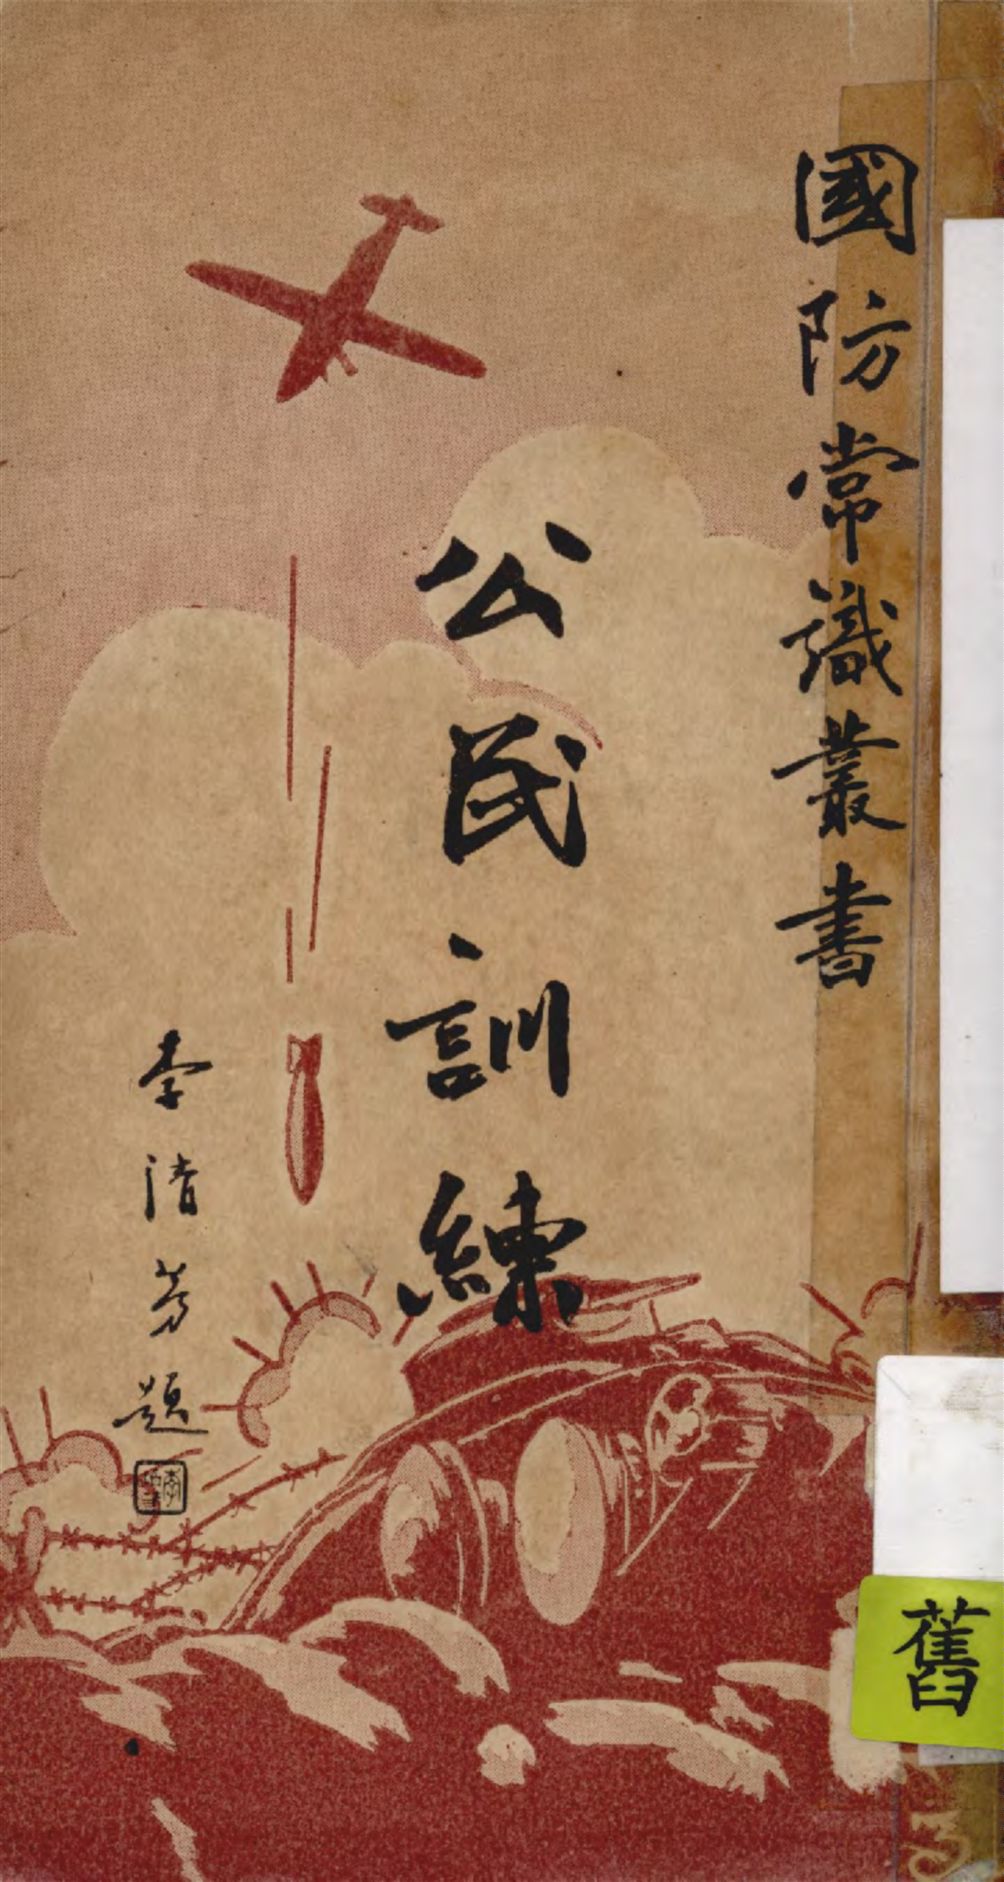 國防常識叢書
公民訓練
李清芳題
舊
3